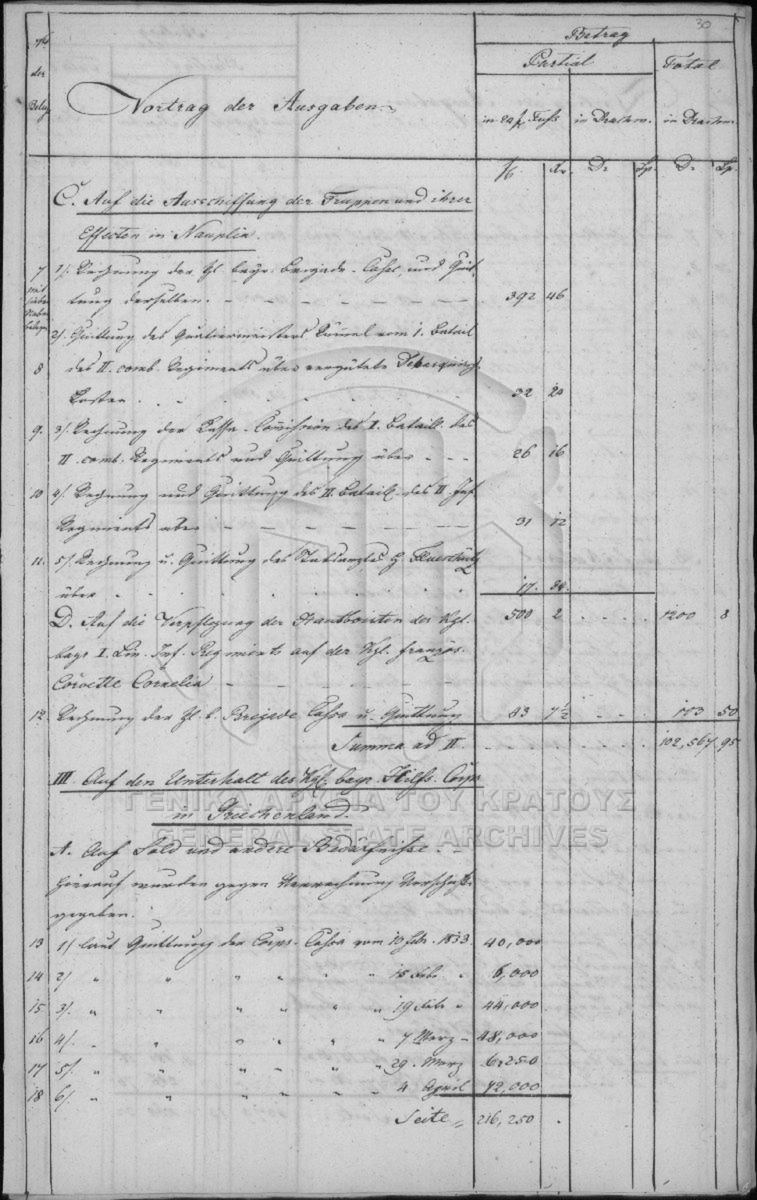 30
No
der
Beleg
Vortrag der Ausgaben.
Betrag
Partial
Total
in 24 f. Fuß
in Drachm.
in Drachm.
fl. Kr. Dr. Lp. Dr. Lp.
C. Auf die Ausschiffung der Truppen und ihrer
Effecten in Nauplia.
7 1/. Rechnung der Kl. bayr. Brigade-Casse, und Quit
mit
tung derselben. 392 46
2/. Quittung des Quartiermeisters vom 1. Batail
8 des II. comb. Regiments über vergütete
Kosten 32 20
9. 3/. Rechnung der Cassa-Com̄ission des I. Bataill. des
II. comb. Regiments und Quittung über 26 16
10 4/. Rechnung und Quittung des II. Batail. des II Inf.
Regiments über 31 12
11. 5/. Rechnung u. Quittung des Stabsarztes H.
über 17.
D. Auf die Verpflegung der Hautboisten des Kgl. 500 2 1200 8
bayr. I. Lin. Inf. Regiments auf der Kgl. französ.
Corvette Cornelia
12. Rechnung der Kl. b. Brigade Cassa u. Quittung 83 7½ 173 50
Summa ad II. 102,567 95
III. Auf den Unterhalt des Kgl. bayr. Hilfs-Corps
in Griechenland.
ΓΕΝΙΚΑ ΑΡΧΕΙΑ ΤΟΥ ΚΡΑΤΟΥΣ
GENERAL STATE ARCHIVES
A. Auf Sold und andere Bedürfnisse.
Hierauf wurden gegen Verrechnung Vorschüsse
gegeben.
13 1/ laut Quittung der Corps-Cassa vom 10 Feb. 1833. 40,000
14 2/ " " " " " 18 Feb. " 6,000
15 3/. " " " " " 19 Feb. " 44,000
16 4/. " " " " " 7 März " 48,000
17 5/. " " " " " 29. März 6,250
18 6/. " " " " " 4 April 72,000
Seite 216,250